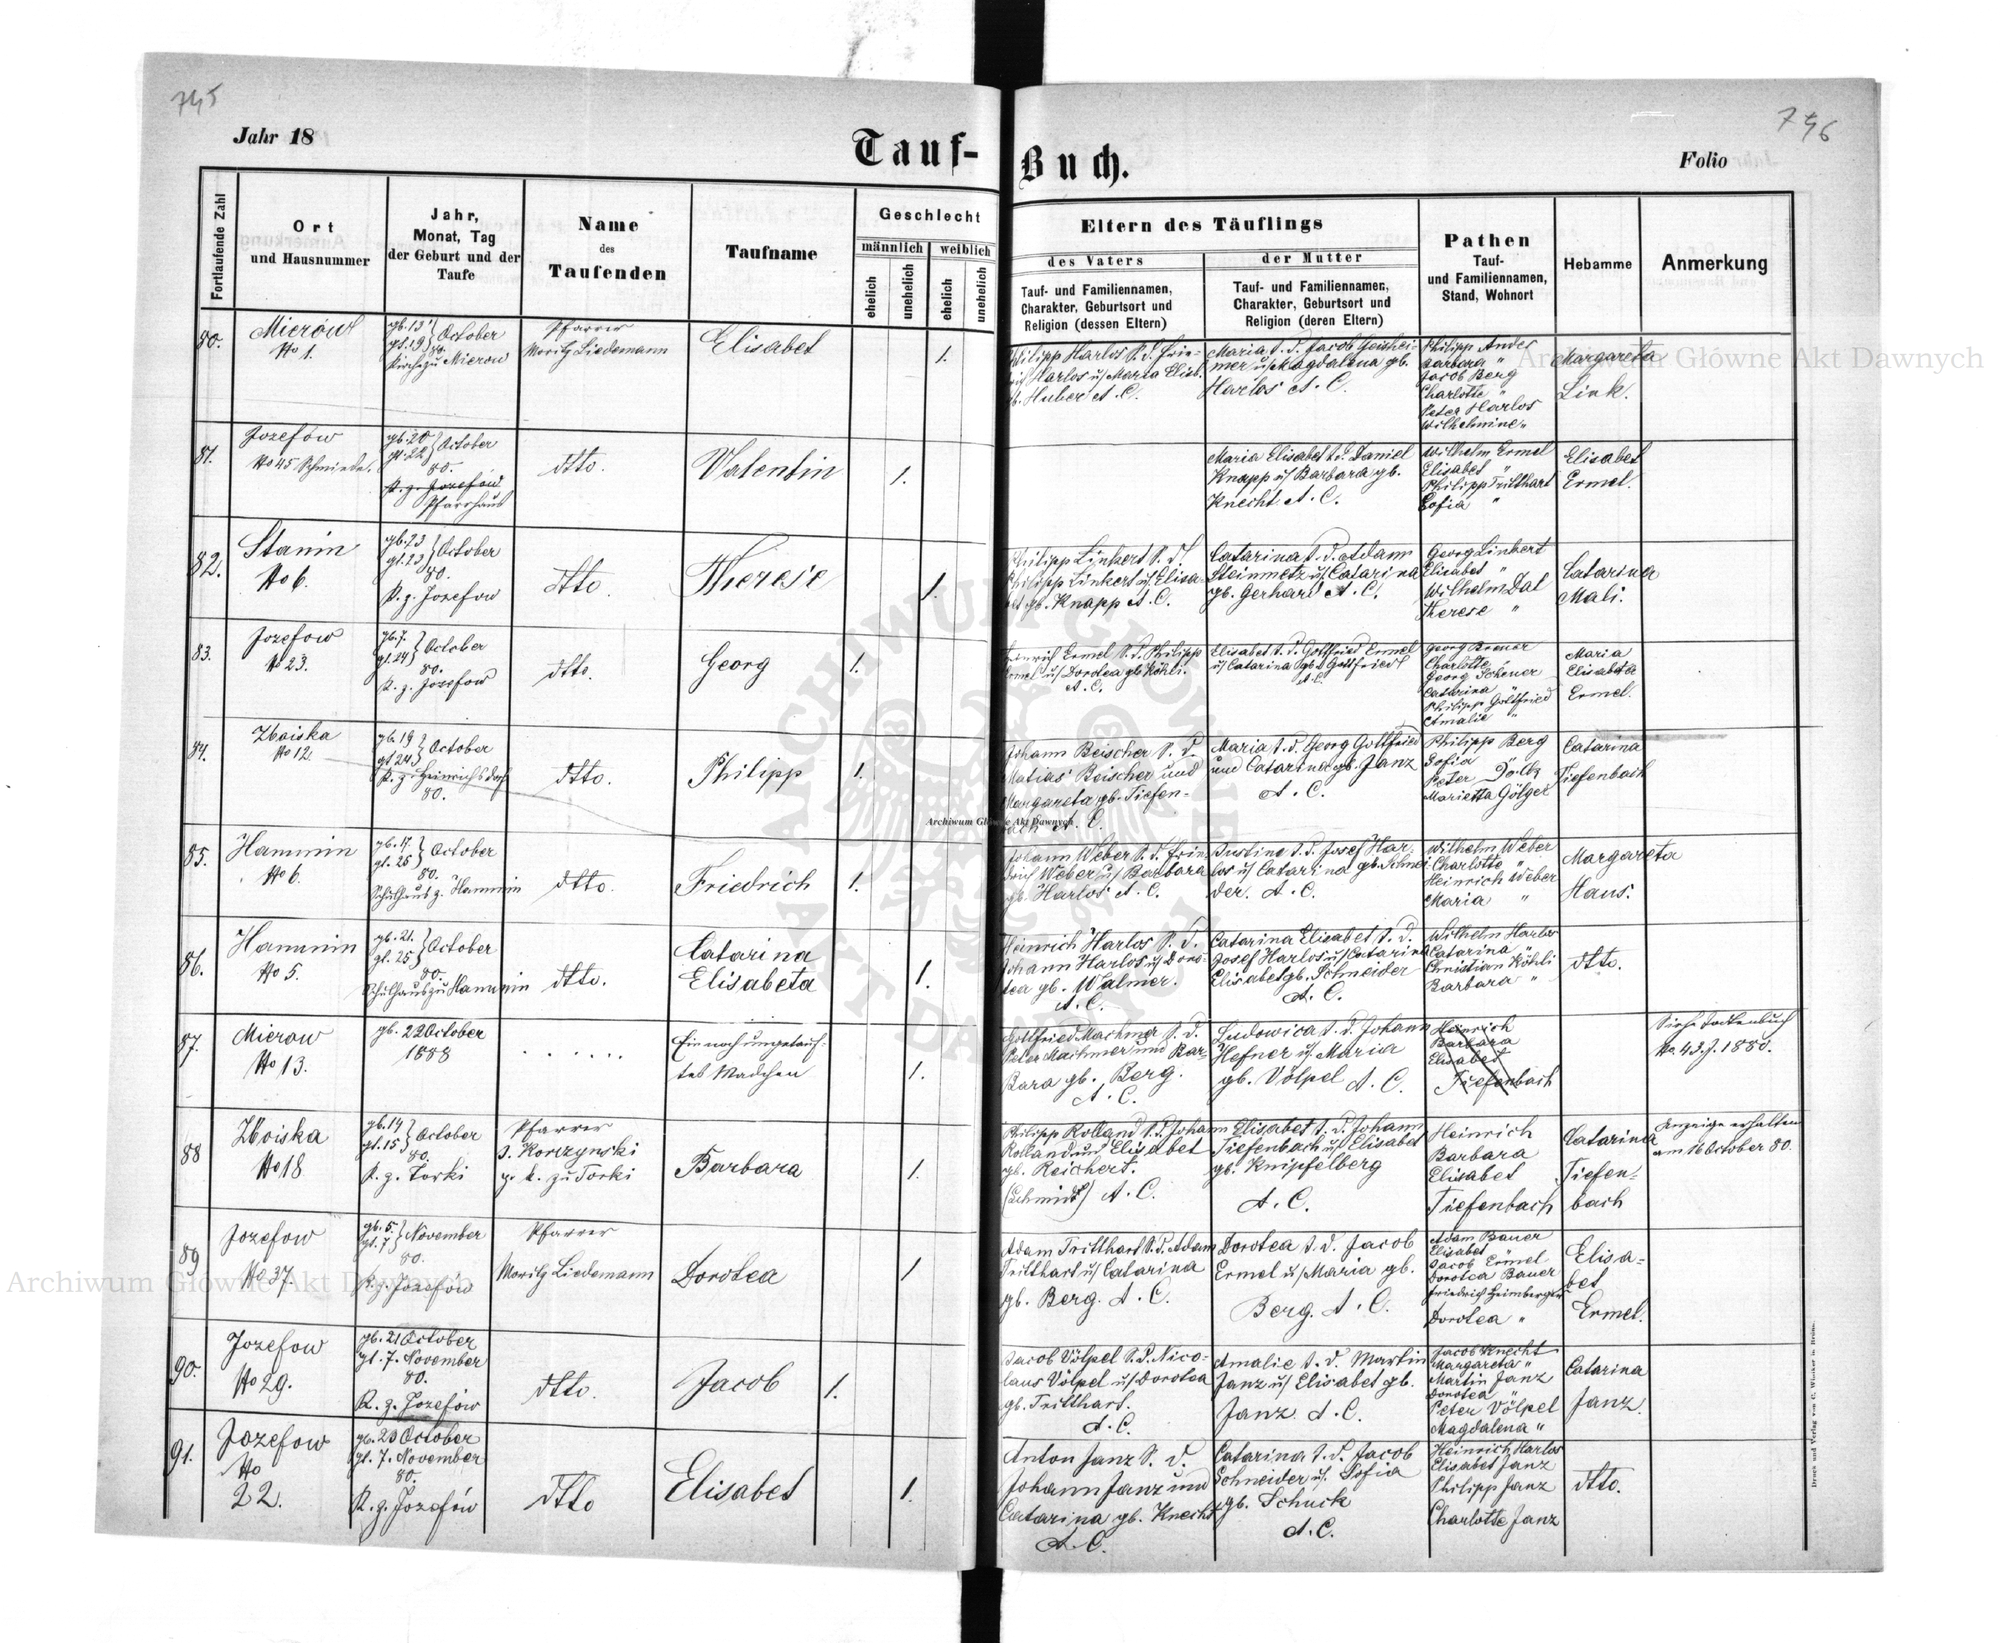 745
Jahr 18
Tauf-
Fortlaufende Zahl
Ort
und Hausnummer
Jahr,
Monat, Tag
der Geburt und der
Taufe
Name
des
Taufenden
Taufname
Geschlecht
männlich
weiblich
ehelich
unehelich
ehelich
unehelich
746
Buch.
Folio
Eltern des Täuflings
des Vaters
Tauf- und Familiennamen,
Charakter, Geburtsort und
Religion (dessen Eltern)
der Mutter
Tauf- und Familiennamen,
Charakter, Geburtsort und
Religion (deren Eltern)
Pathen
Tauf-
und Familiennamen,
Stand, Wohnort
Hebamme
Anmerkung
80.
Mierów
No 1.
gb. 13
gt. 19 } October
80.
Kirche zu Mierow
Pfarrer
Moritz Liedemann
Elisabet
1.
Philipp Harlos S. d. Frie-
rich Harlos u/ Maria Elisb.
gb. Huber A. C.
Maria t. d. Jacob Geishei-
mer u/ Magdalena gb.
Harlos A. C.
Philipp Andes
Barbara "
Jacob Berg
Charlotte "
Peter Harlos
Wilhelmine "
Margareta
Link.
81.
Jozefów
No 45 Schmiede.
gb. 20
gt. 22 } October
80.
K. z. Jozefów
Pfarrhaus
dtto.
Valentin
1.
Maria Elisabet t. d. Daniel
Knapp u/ Barbara gb.
Knecht A. C.
Wilhelm Ermel
Elisabet "
Philipp Trillhart
Sofia "
Elisabet
Ermel.
82.
Stanin
No 6.
gb. 23
gt. 23 } October
80.
K. z. Jozefow
dtto.
Therese
1.
Philipp Linkert S. d.
Philipp Linkert u/ Elisa-
bet gb. Knapp A. C.
Catarina t. d. Adam
Steinmetz u/ Catarina
gb. Gerhard A. C.
Georg Linkert
Elisabet "
Wilhelm Dal
Therese "
Catarina
Mali.
83.
Jozefow
No 23.
gb. 7.
gt. 24 } October
80.
K. z. Jozefow
dtto.
Georg
1.
Heinrich Ermel S. d. Philipp
Ermel u/ Dorotea gb. Köhli.
A. C.
Elisabet t. d. Gottfried Ermel
u/ Catarina gb. Gottfried
A. C.
Georg Brener
Charlotte
Georg Schöner
Catarina "
Philipp Gottfried
Amalie "
Maria
Elisabeta
Ermel.
84.
Zboiska
No 12.
gb. 19
gt 24 } October
K. z. Heinrichsdorf
80.
dtto.
Philipp
1.
Johann Beischer S. d.
Matias Beischer und
Margareta gb. Tiefen-
bach A. C.
Maria t. d. Georg Gottfried
und Catarina gb. Janz
A. C.
Philipp Berg
Sofia
Marietta Gölger
Catarina
Tiefenbach
85.
Hanunin
No 6.
gb. 17.
gt. 25 } October
80.
Schulhaus z. Hanunin
dtto.
Friedrich
1.
Johann Weber S. d. Frie-
drich Weber u/ Barbara
gb. Harlos A. C.
Justine t. d. Josef Har-
los u/ Catarina gb. Schnei-
der. A. C.
Wilhelm Weber
Charlotte "
Heinrich Weber
Maria "
Margareta
Haus.
86.
Hanunin
No 5.
gb. 21.
gt. 25 } October
80.
Schulhaus zu Hanunin
dtto.
Catarina
Elisabeta
1.
Heinrich Harlos S. d.
Johann Harlos u/ Doro-
tea gb. Walmer.
A. C.
Catarina Elisabet t. d.
Josef Harlos u/ Catarina
Elisabet gb. Schneider
A. C.
Wilhelm Harlos
Catarina "
Christian Köhli
Barbara "
dtto.
87.
Mierow
No 13.
gb. 22 October
1888
. . . . . .
Ein noch ungetauf-
tes Mädchen
1.
Gottfried Machmer S. d.
Peter Machmer und Bar-
bara gb. Berg.
A. C.
Ludowica t. d. Johann
Hefner u/ Maria
gb. Völpel A. C.
Heinrich
Barbara
Elisabet
Tiefenbach
Siehe Todtenbuch
No. 43. J. 1880.
88
Zboiska
No 18
gb. 14
gt. 15 } October
80.
K. z. Torki
Pfarrer
J. Korczynski
g. k. zu Torki
Barbara
1.
Philipp Rolland S. d. Johann
Rolland und Elisabet
gb. Reichert.
(Schmidt) A. C.
Elisabet t. d. Johann
Tiefenbach u/ Elisabet
gb. Knipfelberg
A. C.
Heinrich
Barbara
Elisabet
Tiefenbach
Catarina
Tiefen-
bach
Anzeige erhalten
am 16 October 80.
89
Jozefow
No 37.
gb. 5.
gt. 7 } November
80.
K. z. Jozefow
Pfarrer
Moritz Liedemann
Dorotea
1
Adam Trillhart S. d. Adam
Trillhart u/ Catarina
gb. Berg. A. C.
Dorotea t. d. Jacob
Ermel u/ Maria gb.
Berg. A. C.
Adam Bauer
Elisabet
Jacob Ermel
Dorotea Bauer
Friedrich Heimberger
Dorotea "
Elisa-
bet
Ermel.
90.
Jozefow
No 29.
gb. 21 October
gt. 7. November
80.
K. z. Jozefów
dtto.
Jacob
1.
Jacob Völpel S. d. Nico-
laus Völpel u/ Dorotea
gb. Trillhart.
A. C.
Amalie t. d. Martin
Janz u/ Elisabet gb.
Janz A. C.
Jacob Knecht
Margareta "
Martin Janz
Dorotea "
Peter Völpel
Magdalena "
Catarina
Janz.
91.
Jozefow
No
22.
gb. 20 October
gt. 7. November
80.
K. z. Jozefów
dtto
Elisabet
1.
Anton Janz S. d.
Johann Janz und
Catarina gb. Knecht
A. C.
Catarina t. d. Jacob
Schneider u/ Sofia
gb. Schuck
A. C.
Heinrich Harlos
Elisabet Janz
Philipp Janz
Charlotte Janz
dtto.
Druck und Verlag von C. Winiker in Brünn.
Archiwum Główne Akt Dawnych
Archiwum Główne Akt Dawnych
Archiwum Główne Akt Dawnych
ARCHIWUM GŁÓWNE AKT DAWNYCH